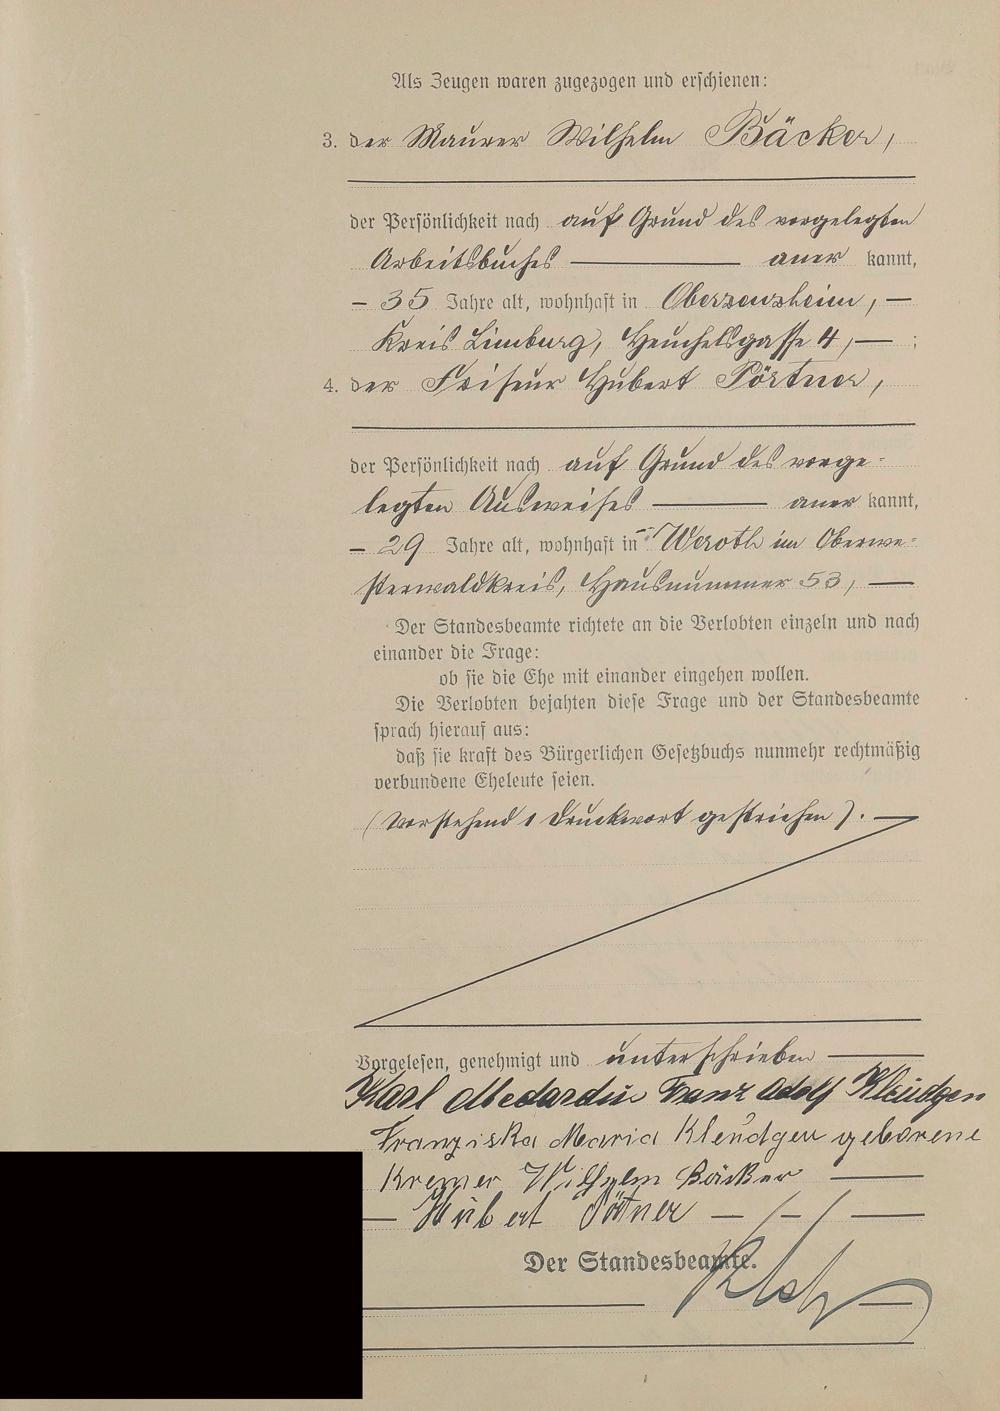 Als Zeugen waren zugezogen und erschienen:
3. der Maurer Wilhelm Bäcker,
der Persönlichkeit nach auf Grund des vorgelegten
Arbeitsbuches — aner kannt,
– 35 Jahre alt, wohnhaft in Oberzeuzheim, —
Kreis Limburg, Heuchelsgasse 4, — ;
4. der Friseur Hubert Pörtner,
der Persönlichkeit nach auf Grund des vorge-
legten Ausweises — aner kannt,
– 29 Jahre alt, wohnhaft in Weroth im Oberwe-
sterwaldkreis, Hausnummer 53, —
Der Standesbeamte richtete an die Verlobten einzeln und nach
einander die Frage:
ob sie die Ehe mit einander eingehen wollen.
Die Verlobten bejahten diese Frage und der Standesbeamte
sprach hierauf aus:
daß sie kraft des Bürgerlichen Gesetzbuchs nunmehr rechtmäßig
verbundene Eheleute seien.
(Vorstehend 1 Druckwort gestrichen). —
Vorgelesen, genehmigt und unterschrieben —
Karl Medardus Franz Adolf Kleudgen
Franziska Maria Kleudgen geborene
Kremer Wilhelm Bäcker —
— Hubert Pörtner — / — / —
Der Standesbeamte.